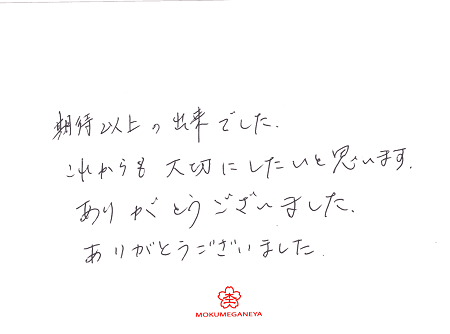 期待以上の出来でした.
これからも大切にしたいと思います.
ありがとうございました.
ありがとうございました.
杢
MOKUMEGANEYA